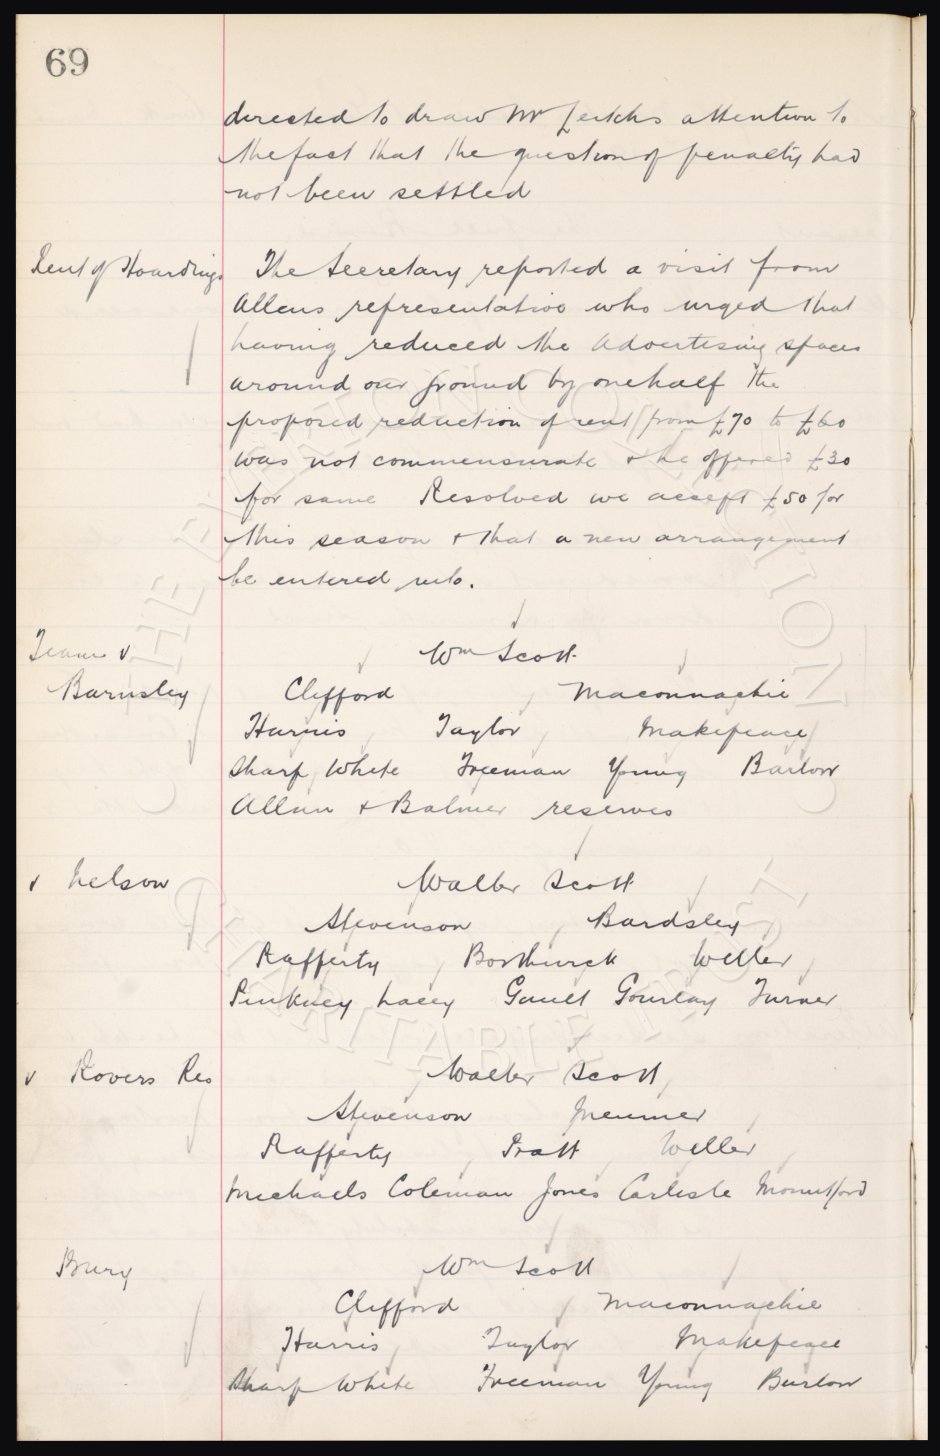 69
directed to draw Mr Leitchs attention to
the fact that the question of penalty had
not been settled
Rent of Hoardings
The Secretary reported a visit from
Allens representative who urged that
having reduced the advertising spaces
around our ground by onehalf the
proposed reduction of rent from £70 to £60
was not commensurate & he offered £30
for same Resolved we accept £50 for
this season & that a new arrangement
be entered into.
Team v
Wm Scott
Barnsley
Clifford Maconnachie
Harris Taylor Makepeace
Sharp White Freeman Young Barlow
Allan & Balmer reserves
v Nelson
Walter Scott
Stevenson Bardsley
Rafferty Borthwick Weller
Pinkney Lacey Gault Gourlay Turner
v Rovers Res
Walter Scott
Stevenson Meunier
Rafferty Pratt Weller
Michaels Coleman Jones Carlisle Mountford
Bury
Wm Scott
Clifford Maconnachie
Harris Taylor Makepeace
Sharp White Freeman Young Barlow
CHARITABLE TRUST